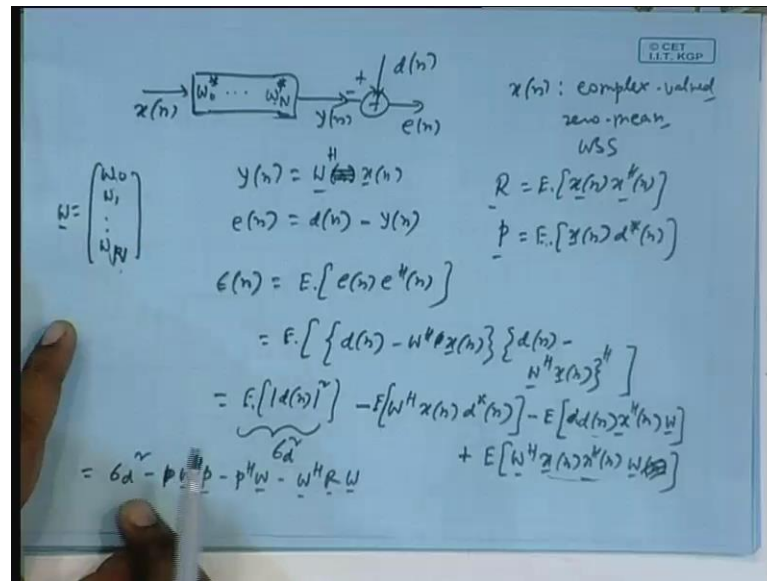 © CET
I.I.T. KGP
x(n) w₀* ... w_N* y(n) + - + d(n) e(n)
x(n) : complex-valued
zero-mean
WSS
w = [w₀ w₁ ⋮ w_N]
y(n) = w^H x(n)
R = E.[x(n) x^H(n)]
e(n) = d(n) - y(n)
p = E.[x(n) d*(n)]
ϵ(n) = E.[e(n) e^H(n)]
= E.[{d(n) - w^H x(n)} {d(n) - w^H x(n)}^H]
= E.[|d(n)|²] - E[w^H x(n) d*(n)] - E[d(n) x^H(n) w]
σd²
+ E[w^H x(n) x^H(n) w]
= σd² - p - p^H w - w^H R w